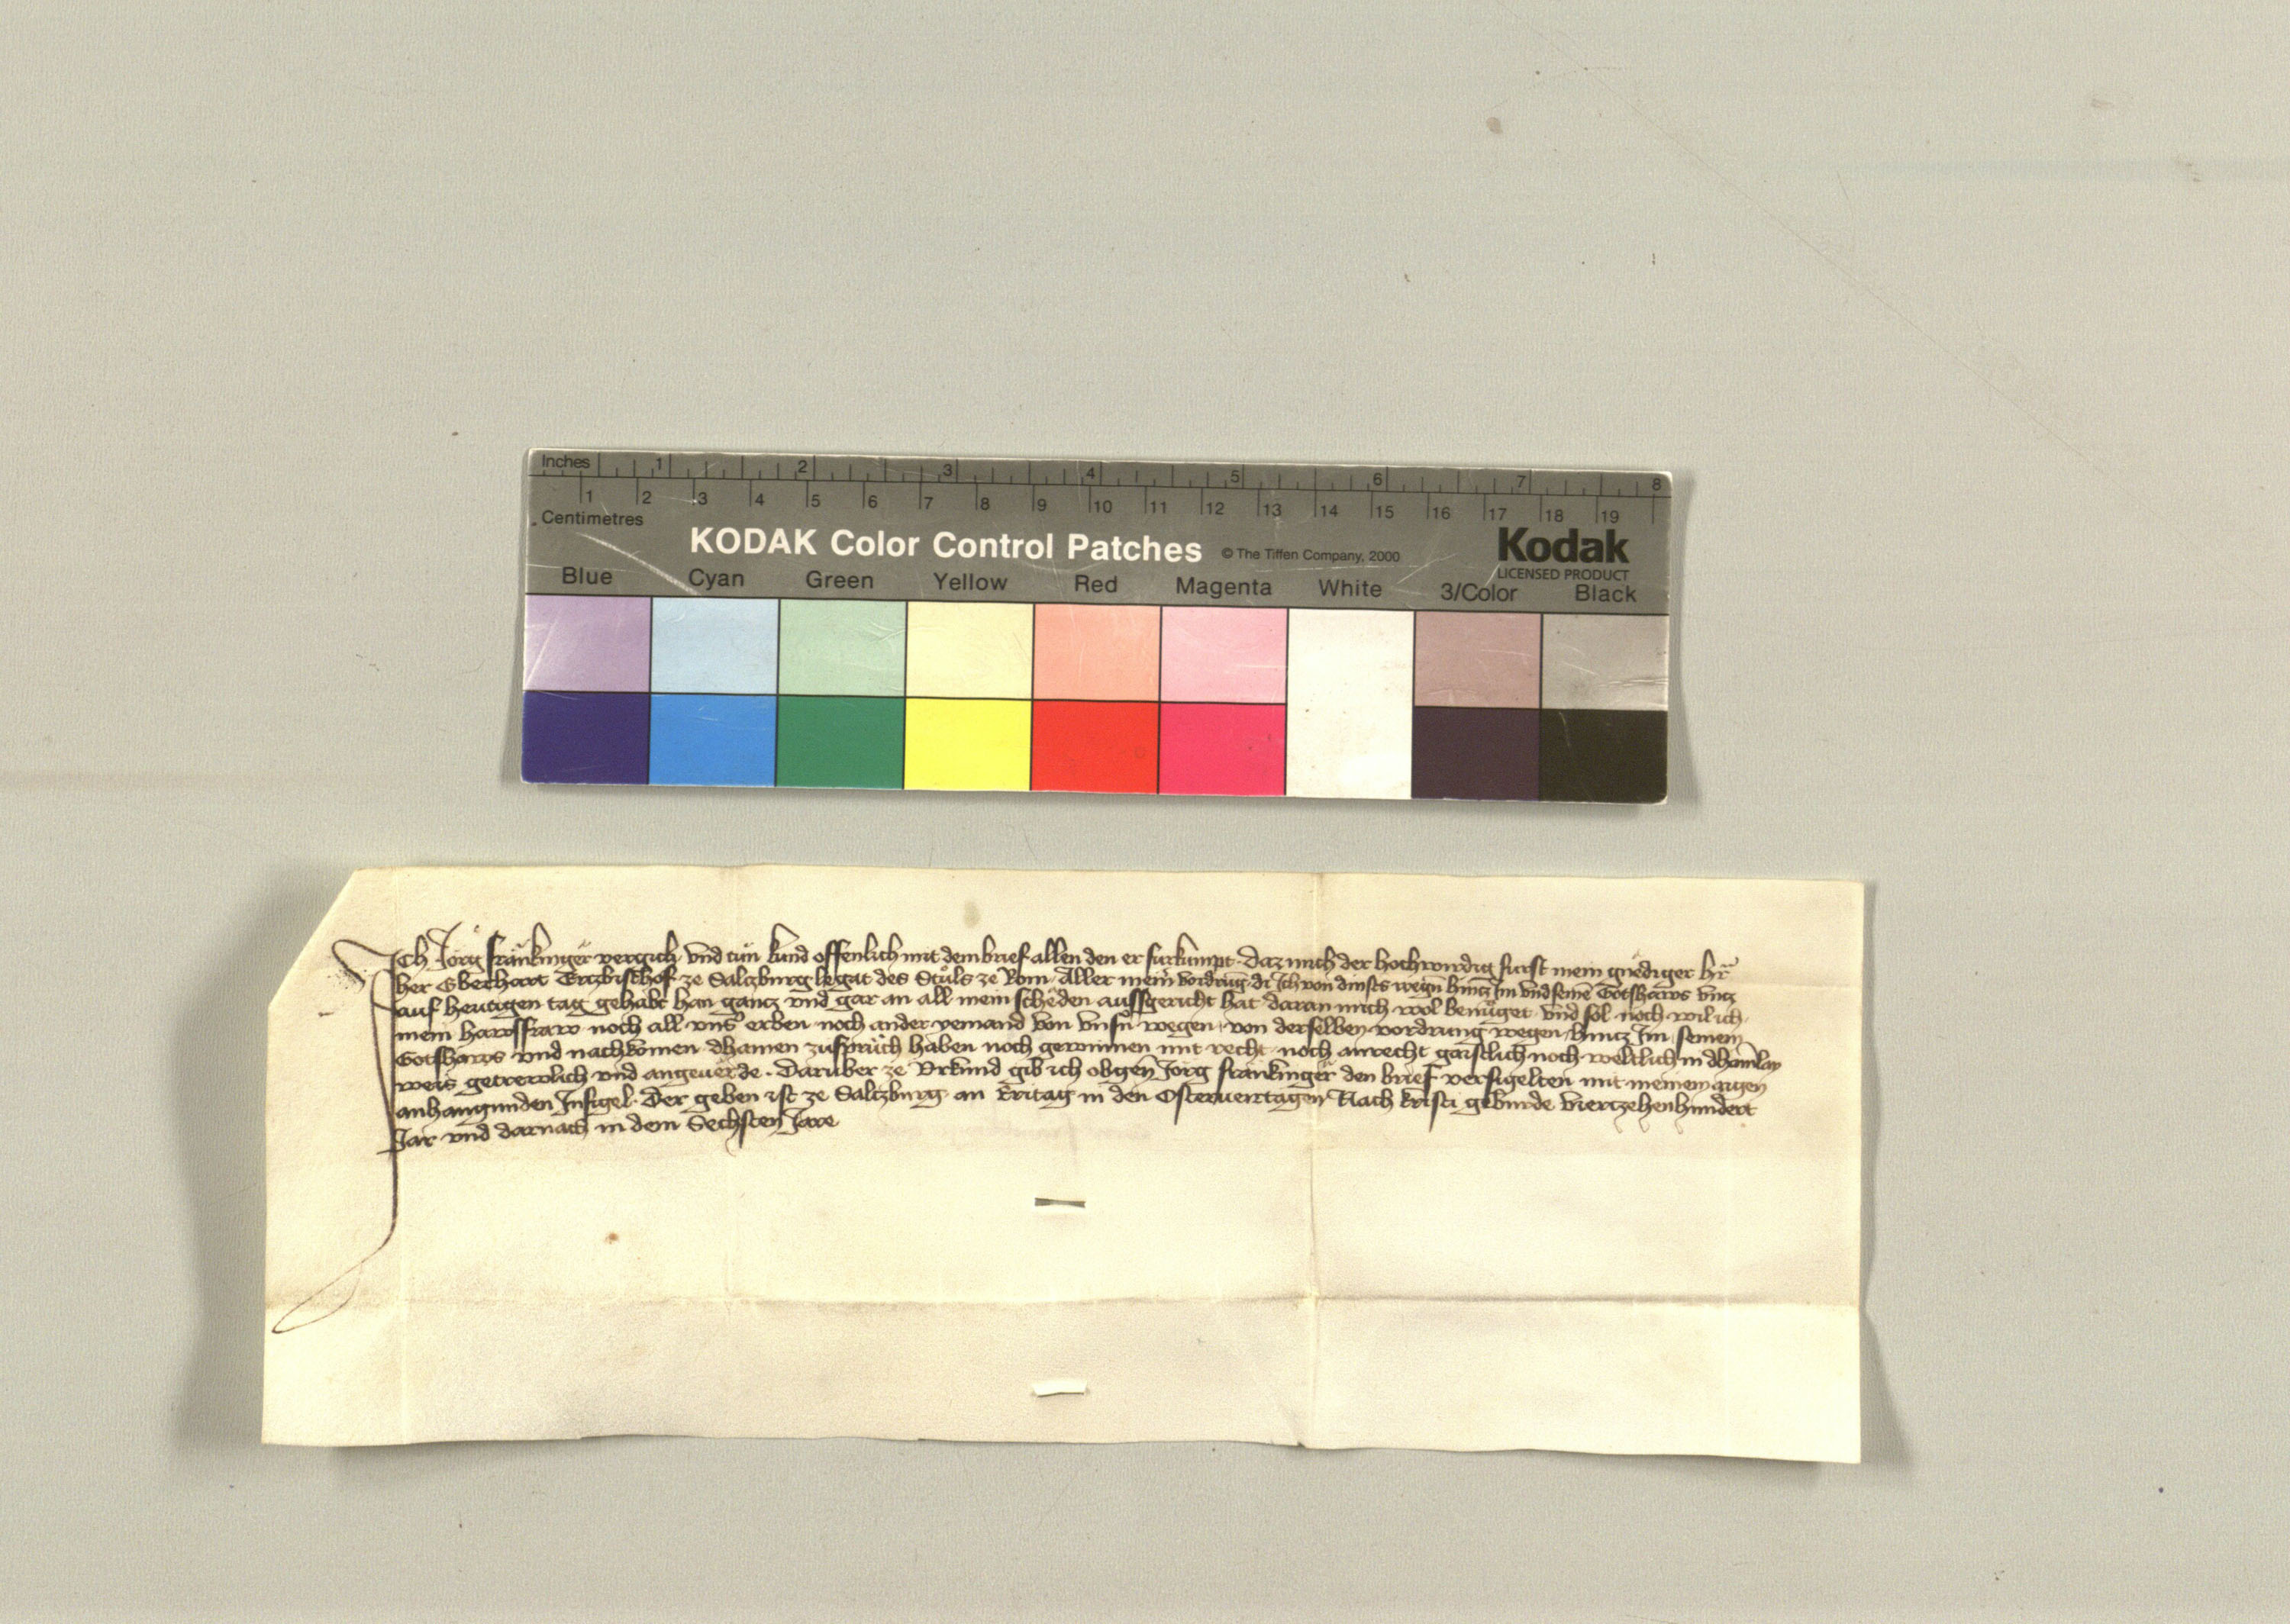 Inches 1 2 3 4 5 6 7 8
1 2 3 4 5 6 7 8 9 10 11 12 13 14 15 16 17 18 19
Centimetres
KODAK Color Control Patches © The Tiffen Company, 2000 Kodak
LICENSED PRODUCT
Blue Cyan Green Yellow Red Magenta White 3/Color Black
Ich Jörg Fränkinger vergich vnd tůn kund offenlich mit dem brief allen den er furkumpt. Daz mich der hochwirdig furst mein gnediger hr̄
her Eberhart Ertzbischof ze Saltzburg legat des Stůls ze Rom Aller meiner vordrūg di Ich von dinsts wegn̄ hintz Im vnd seinē Gotshaws vntz
auf hewtigen tag gehabt han gantz vnd gar an all mein scheden aussgericht hat daran mich wol benůget vnd sol noch wil ich
mein hawsfraw noch all vnser erben noch ander yemand von vnsern wegen von derselben vordrung wegen hintz Im seinem
Gotshaws vnd nachkomen dhainen zuspruch haben noch gewinnen mit recht noch anrecht gaistlich noch weltlich in dhainlay
weis getrewlich vnd angeuerde. Daruber ze Vrkund gib ich obgen̄ Jörg Fränkinger den brief versigelten mit meinem aigen
anhangunden Insigel. Der geben ist ze Saltzburg an Eritag in den Osterueirtagen Nach kristi geburde viertzehenhundert
Jar vnd darnach in dem Sechsten Jare